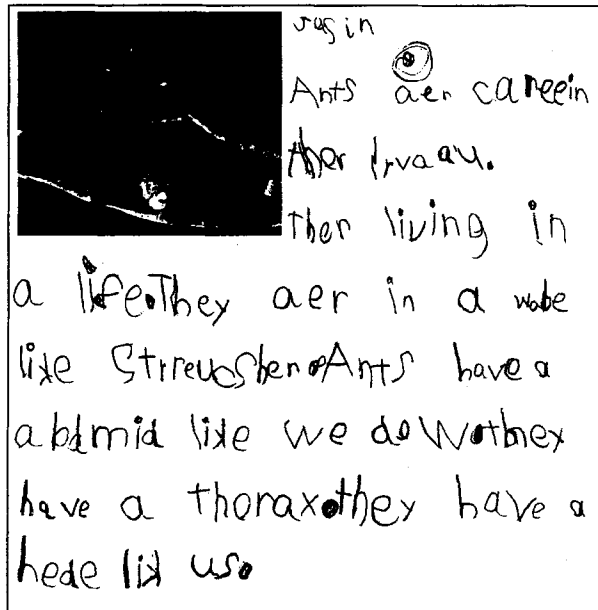 vogin
Ants aer careein
ther lrvaau.
Ther living in
a life. They aer in a wobe
like Strreucsher. Ants have a
abdmid like we do Wothey
have a thorax. they have a
hede lik us.